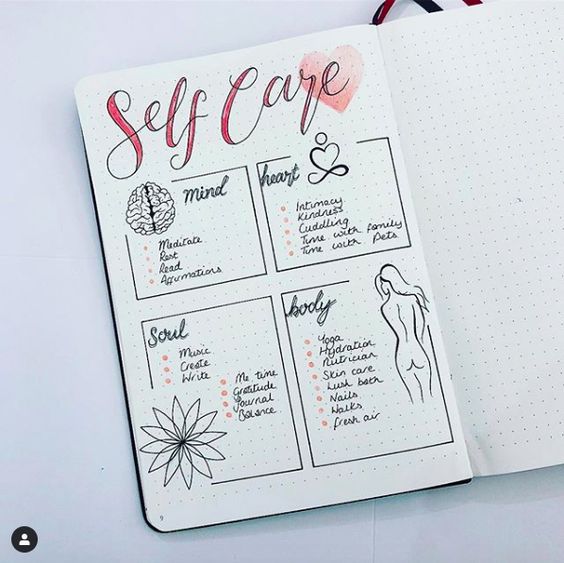 Self Care
mind
Meditate
Rest
Read
Affirmations
heart
Intimacy
Kindness
Cuddling
Time with family
Time with Pets
Soul
Music
Create
Write
Me time
Gratitude
Journal
Balance
body
Yoga
Hydration
Nutrician
Skin care
Lush bath
Nails
Walks
fresh air
9